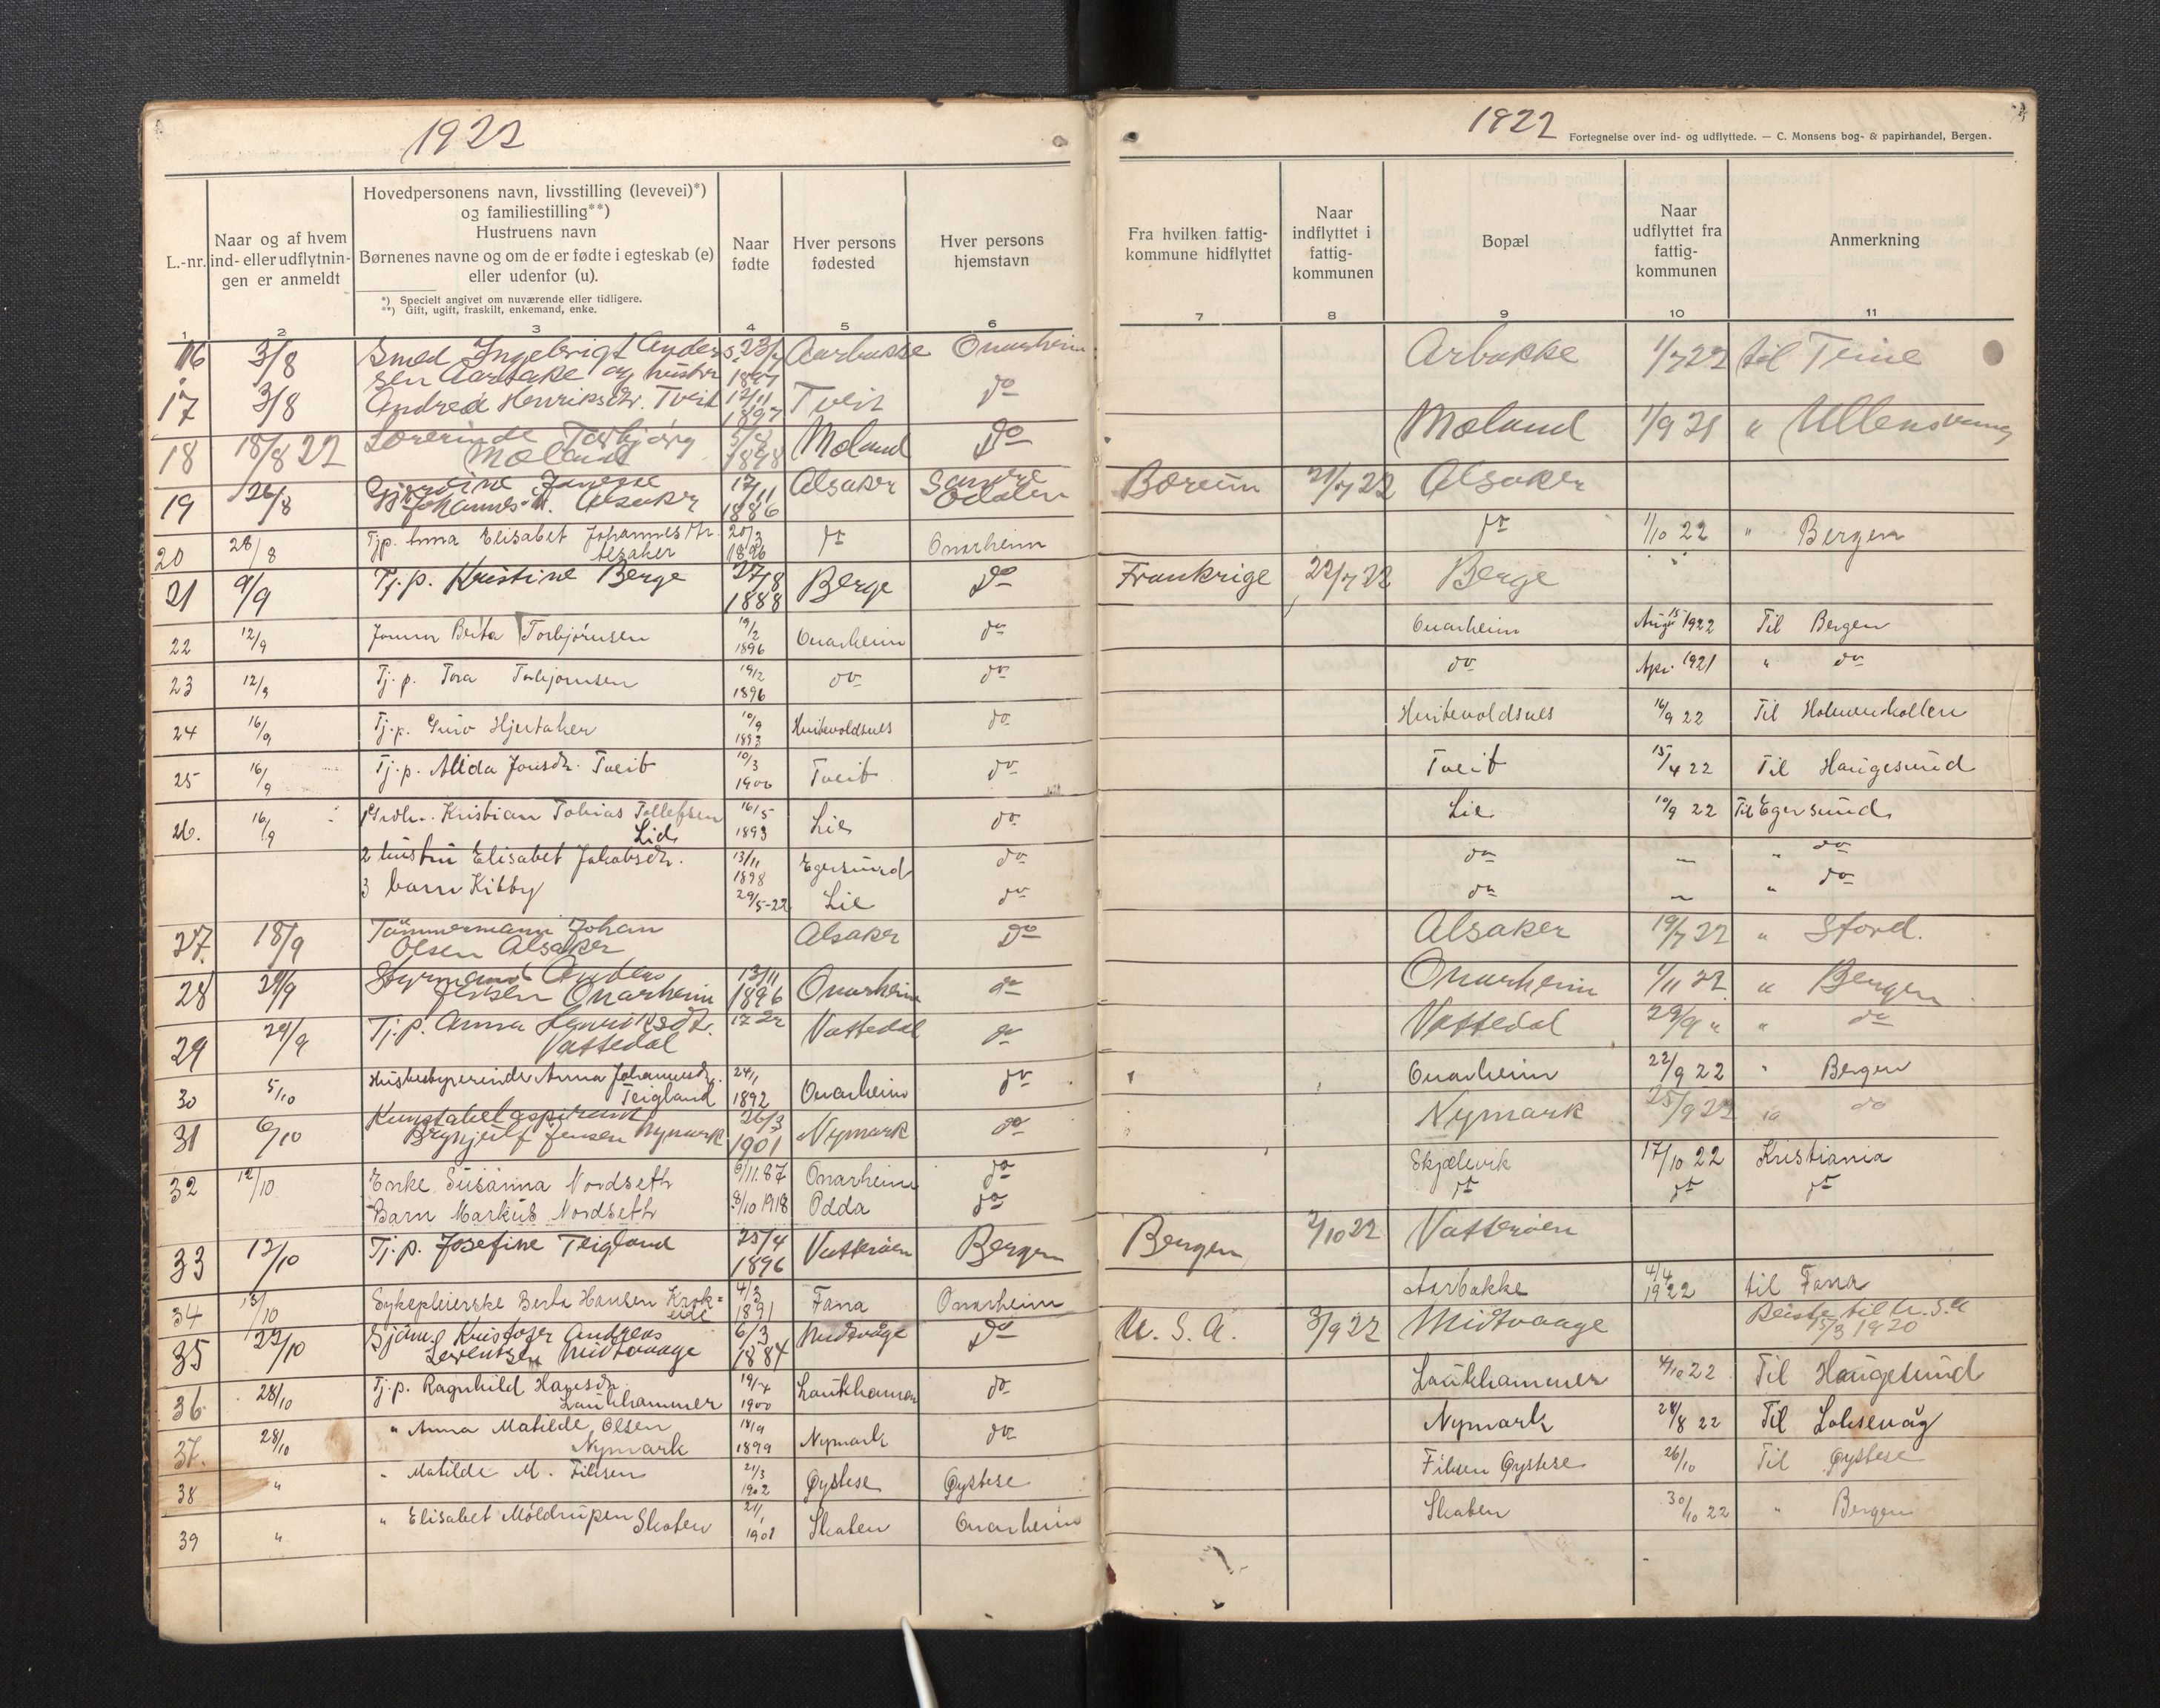 1922
L.-nr.
Naar og af hvem ind- eller udflytnin-gen er anmeldt
Hovedpersonens navn, livsstilling (levevei)*)
og familiestilling**)
Hustruens navn
Børnenes navne og om de er fødte i egteskab (e)
eller udenfor (u).
*) Specielt angivet om nuværende eller tidligere.
**) Gift, ugift, fraskilt, enkemand, enke.
Naar fødte
Hver persons fødested
Hver persons hjemstavn
1 2 3 4 5 6
16 3/8 Smed Ingebrigt Anders- 23/4 Aarbakke Onarheim
sen Aarbake og hustru
17 3/8 Andrea Henriksdr. Tveit 12/11 1897 Tveit do
18 18/8 22 Lærerinde Torbjørg Mæland 5/8 1898 Mæland Do
19 26/8 Johannes M. Alsaker 17/11 1886 Alsaker Søndre Odalen
20 28/8 Tjp. Anna Elisabet Johannesdtr. Alsaker 20/3 1896 do Onarheim
21 9/9 Tj.p. Kristine Berge 27/8 1888 Berge Do
22 12/9 Jomur Berta Torbjørnsen 19/2 1896 Onarheim do
23 12/9 Tj.p. Tora Torbjørnsen 19/2 1896 do do
24 16/9 Tj.p. Guro Hjertaker 10/9 1893 do
25 16/9 Tj.p. Alida Jonsdr. Tveit 10/3 1900 Tveit do
26. 16/9 1 Kristian Tobias Tollefsen 16/5 1893 Lie do
Lid
2 hustru Elisabet Jakobsdr. 13/11 1898 Egersund do
3 barn Kitty 29/5-22 Lie do
27. 18/9 Tømmermann Johan Alsaker Do
Olsen Alsaker
28 29/9 Styrmand Anders 13/11 1896 Onarheim do
Jensen Onarheim
29 29/9 Tj.p. Anna Henriksdr. Vattedal Vattedal do
30 5/10 Husbestyrerinde Anna Johannesdr. Teigland 24/1 1892 Onarheim do
31 6/10 Konstabelaspirant 26/3 1901 Nymark do
Brynjulf Jensen Nymark
32 12/10 Enke Susanna Nordseth 6/11.87 Onarheim do
Barn Markus Nordseth 8/10 1918 Odda do
33 12/10 Tj.p. Josefine Teigland 25/4 1896 Vatterøen Bergen
34 13/10 Sykepleierske Berta Hansen Krok=eide 4/3 1891 Fana Onarheim
35 22/10 Sjøm. Kristofer Andreas 6/3 1884 Midtvåge Do
Lerentsen Midtvaage
36 28/10 Tj.p. Ragnhild Hansdr. Laukhammer 19/4 1900 Laukhammer do
37. 28/10 " Anna Matilde Olsen Nymark 18/9 1899 Nymark do
38 " " Matilde M. Fiksen 21/3 1902 Øystese Øystese
39 " " Elisabet Møldrupen Skaten 21/1 1901 Skaten Onarheim
1922
Fortegnelse over ind- og udflyttede. — C. Monsens bog- & papirhandel, Bergen.
Fra hvilken fattig-kommune hidflyttet
Naar indflyttet i fattig-kommunen
Bopæl
Naar udflyttet fra fattig-kommunen
Anmerkning
7 8 9 10 11
Arbakke 1/7 22 til Teine
Mæland 1/9 21 " Ullensvang
Bærum 21/7 22 Alsaker
do 1/10 22 " Bergen
Frankrige 22/7 22 Berge
Onarheim Aug 15 1922 Til Bergen
do Apr. 1921 " do
16/9 22 Til Holmenkollen
Tveit 15/4 22 Til Haugesund
Lie 10/9 22 Til Egersund
do — " do
do — " do
Alsaker 19/7 22 " Stord.
Onarheim 1/11 22 " Bergen
Vattedal 29/9 " " do
Onarheim 22/9 22 " Bergen
Nymark 25/9 22 " do
Skjelevik 17/10 22 Kristiania
do do do
Bergen 2/10 22 Vatterøen
Aarbakke 4/4 1922 til Fana
U. S. A. 3/9 22 Midtvaage Reiste til U.S.A 15/3 1920
Laukhammer 4/10 22 Til Haugesund
Nymark 28/8 22 Til Laksevåg
Fiksen Øystese 26/10 Til Øystese
Skaten 30/10 22 " Bergen